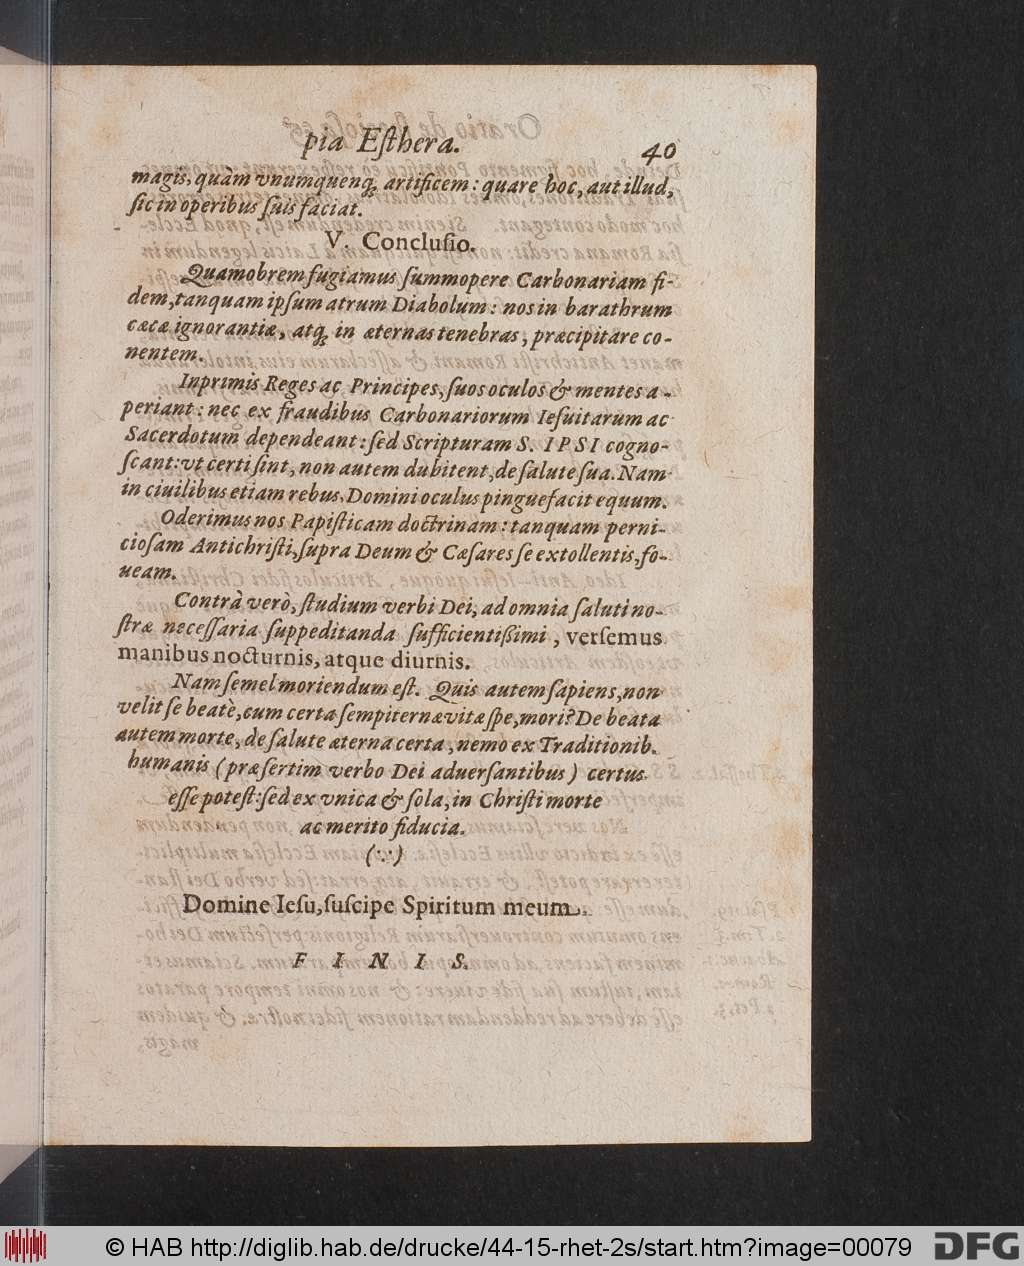 pia Eſthera. 40
magis, quàm vnumquenq; artificem: quare hoc, aut illud,
ſic in operibus ſuis faciat.
V. Concluſio.
Quamobrem fugiamus ſummopere Carbonariam fi-
dem, tanquam ipſum atrum Diabolum: nos in barathrum
cæcæ ignorantiæ, atq; in æternas tenebras, præcipitare co-
nentem.
Inprimis Reges ac Principes, ſuos oculos & mentes a-
periant: nec ex fraudibus Carbonariorum Ieſuitarum ac
Sacerdotum dependeant: ſed Scripturam S. IPSI cogno-
ſcant: vt certi ſint, non autem dubitent, de ſalute ſua. Nam
in ciuilibus etiam rebus, Domini oculus pinguefacit equum.
Oderimus nos Papiſticam doctrinam: tanquam perni-
cioſam Antichriſti, ſupra Deum & Cæſares ſe extollentis, fo-
ueam.
Contrà verò, ſtudium verbi Dei, ad omnia ſaluti no-
ſtræ neceſſaria ſuppeditanda ſufficientißimi, verſemus
manibus nocturnis, atque diurnis.
Nam ſemel moriendum eſt. Quis autem ſapiens, non
velit ſe beatè, cum certa ſempiternæ vitæ ſpe, mori? De beata
autem morte, de ſalute æterna certa, nemo ex Traditionib.
humanis (præſertim verbo Dei aduerſantibus) certus
eſſe poteſt: ſed ex vnica & ſola, in Chriſti morte
ac merito fiducia.
(∵)
Domine Ieſu, ſuſcipe Spiritum meum.
F I N I S.
© HAB http://diglib.hab.de/drucke/44-15-rhet-2s/start.htm?image=00079 DFG